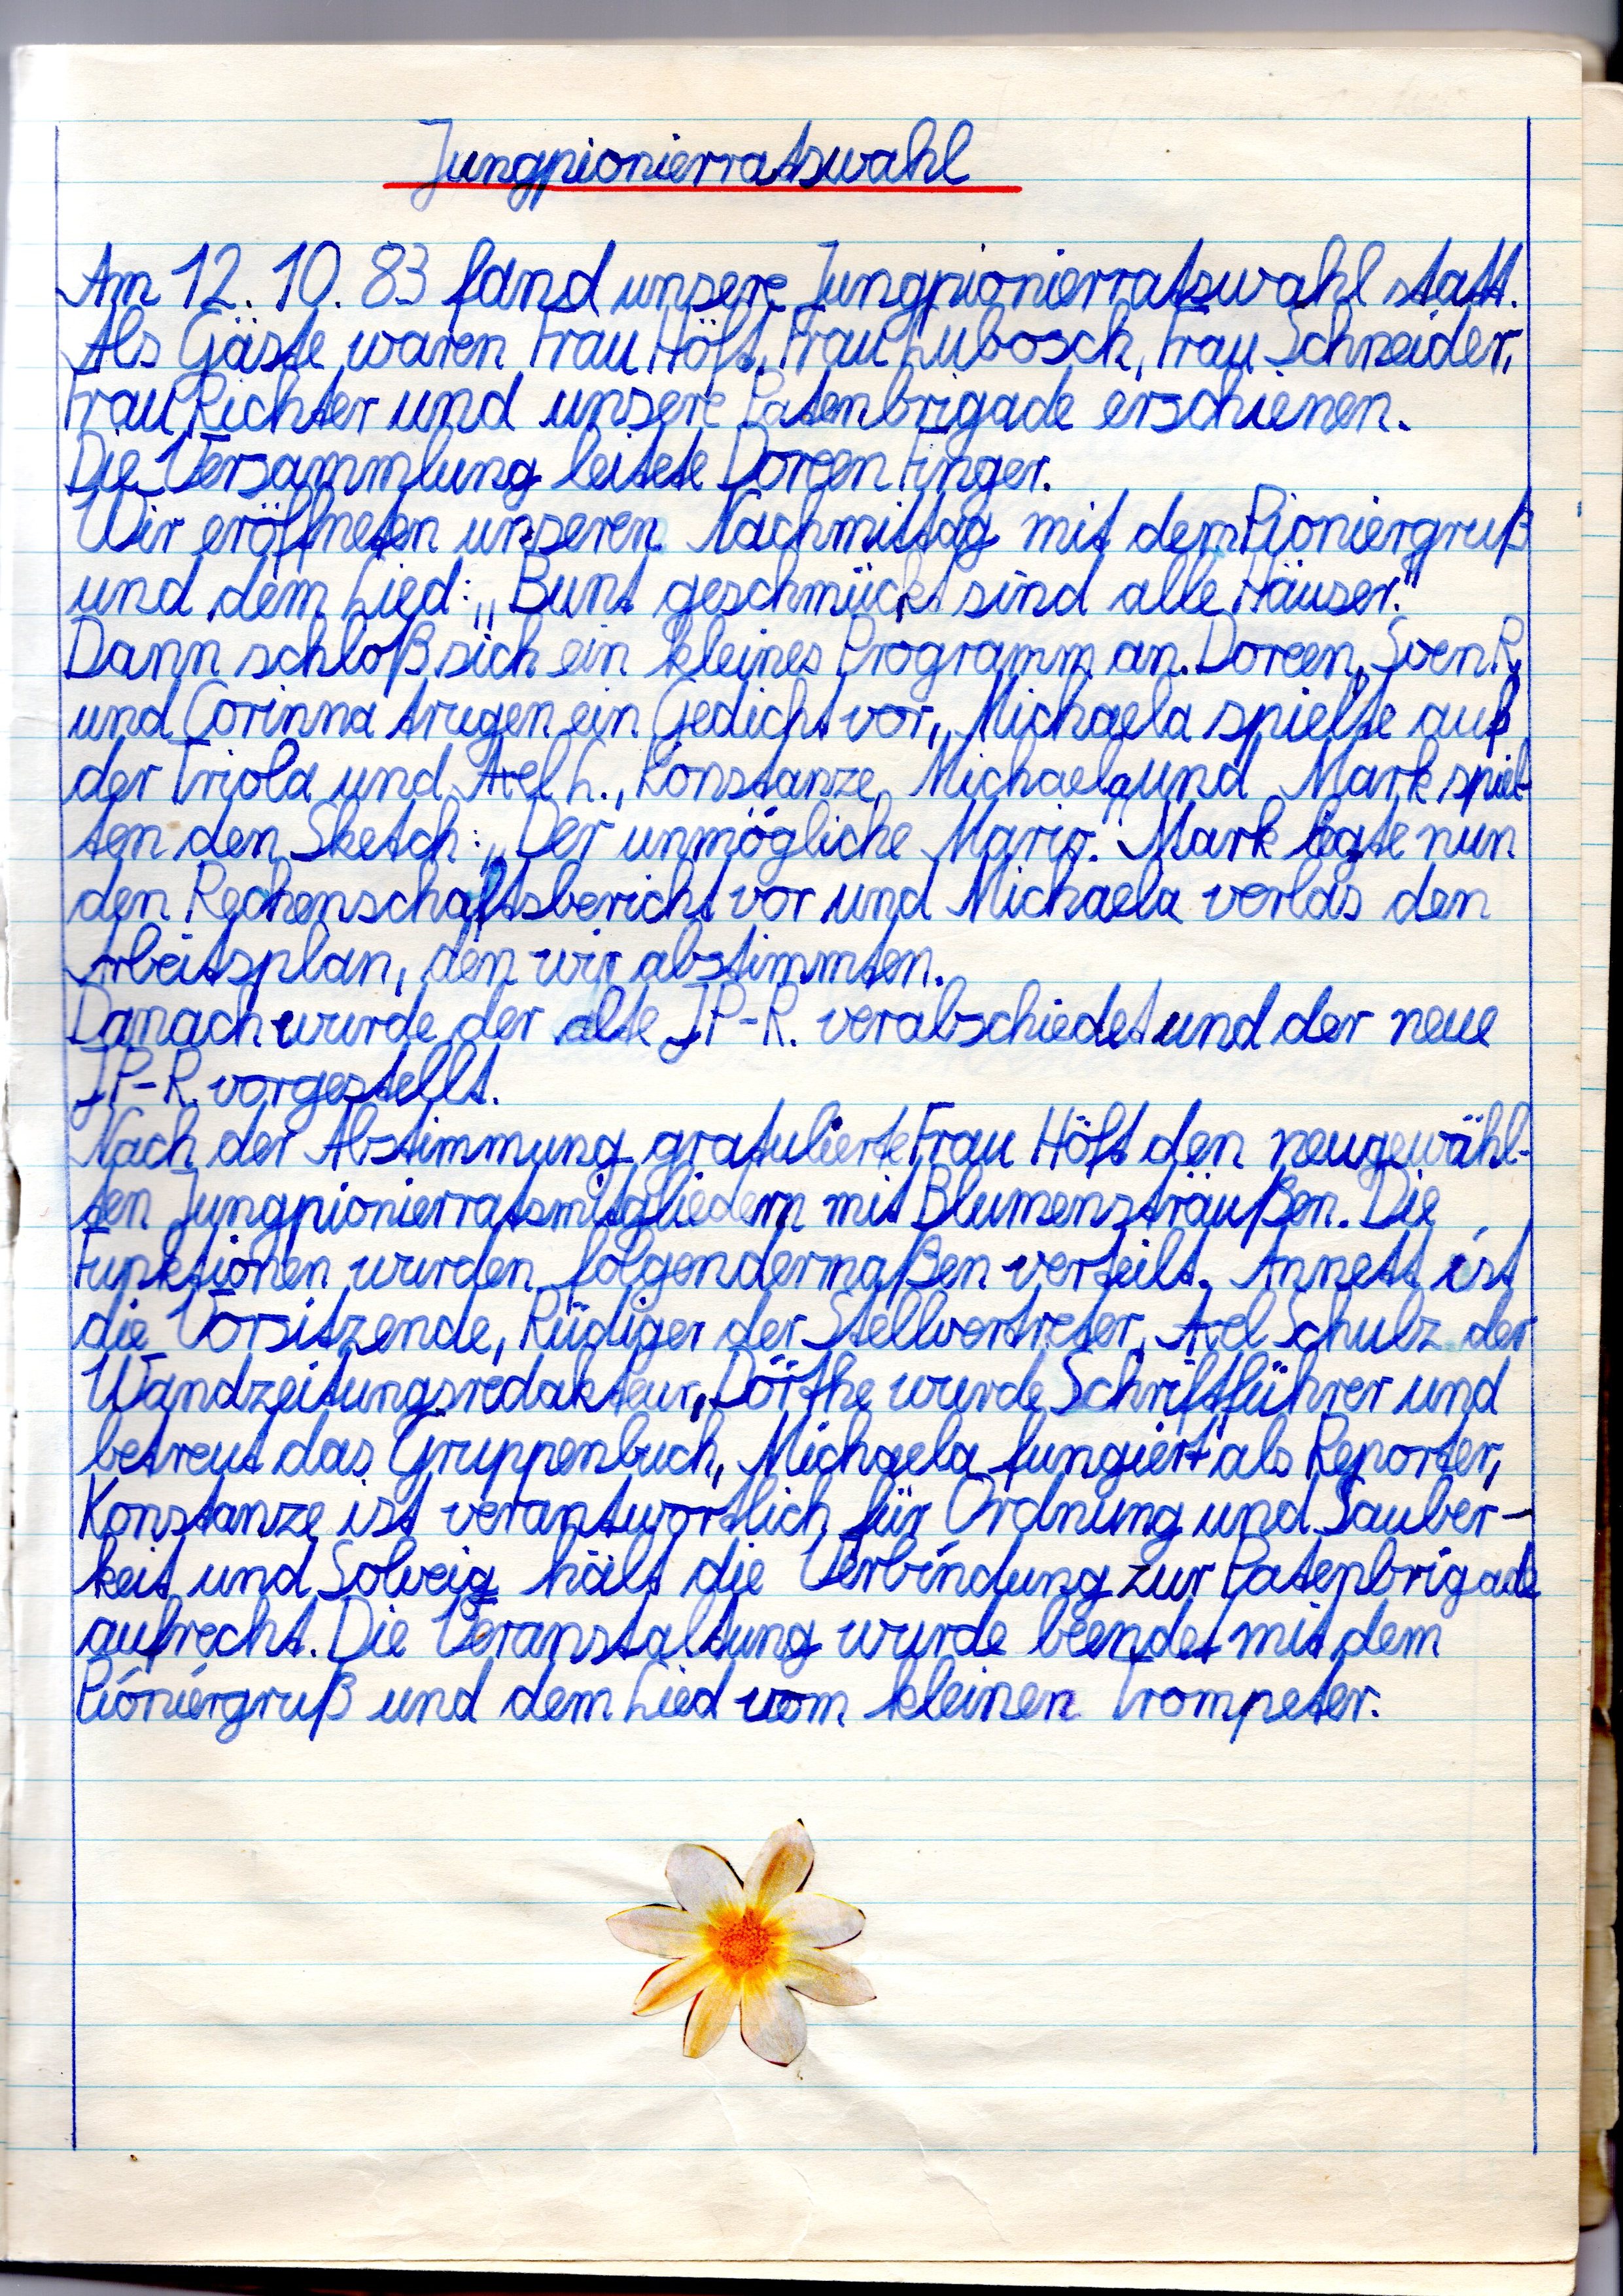 Jungpionierratswahl
Am 12. 10. 83 fand unsere Jungpionierratswahl statt.
Als Gäste waren Frau Höft, Frau Lubosch, Frau Schneider,
Frau Richter und unsere Patenbrigade erschienen.
Die Versammlung leitete Doreen Finger.
Wir eröffneten unseren Nachmittag mit dem Pioniergruß
und dem Lied: „Bunt geschmückt sind alle Häuser."
Dann schloß sich ein kleines Programm an. Doreen, Sven R.
und Corinna trugen ein Gedicht vor, Michaela spielte auf
der Triola und Axel L., Konstanze, Michaela und Mark spiel-
ten den Sketch: „Der unmögliche Mario." Mark legte nun
den Rechenschaftsbericht vor und Michaela verlas den
Arbeitsplan, den wir abstimmten.
Danach wurde der alte JP-R. verabschiedet und der neue
JP-R. vorgestellt.
Nach der Abstimmung gratulierte Frau Höft den neugewähl-
ten Jungpionierratsmitgliedern mit Blumensträußen. Die
Funktionen wurden folgendermaßen verteilt. Annett ist
die Vorsitzende, Rüdiger der Stellvertreter, Axel Schulz der
Wandzeitungsredakteur, Dörthe wurde Schriftführer und
betreut das Gruppenbuch, Michaela fungiert als Reporter,
Konstanze ist verantwortlich für Ordnung und Sauber-
keit und Solveig hält die Verbindung zur Patenbrigade
aufrecht. Die Veranstaltung wurde beendet mit dem
Pioniergruß und dem Lied vom kleinen Trompeter.